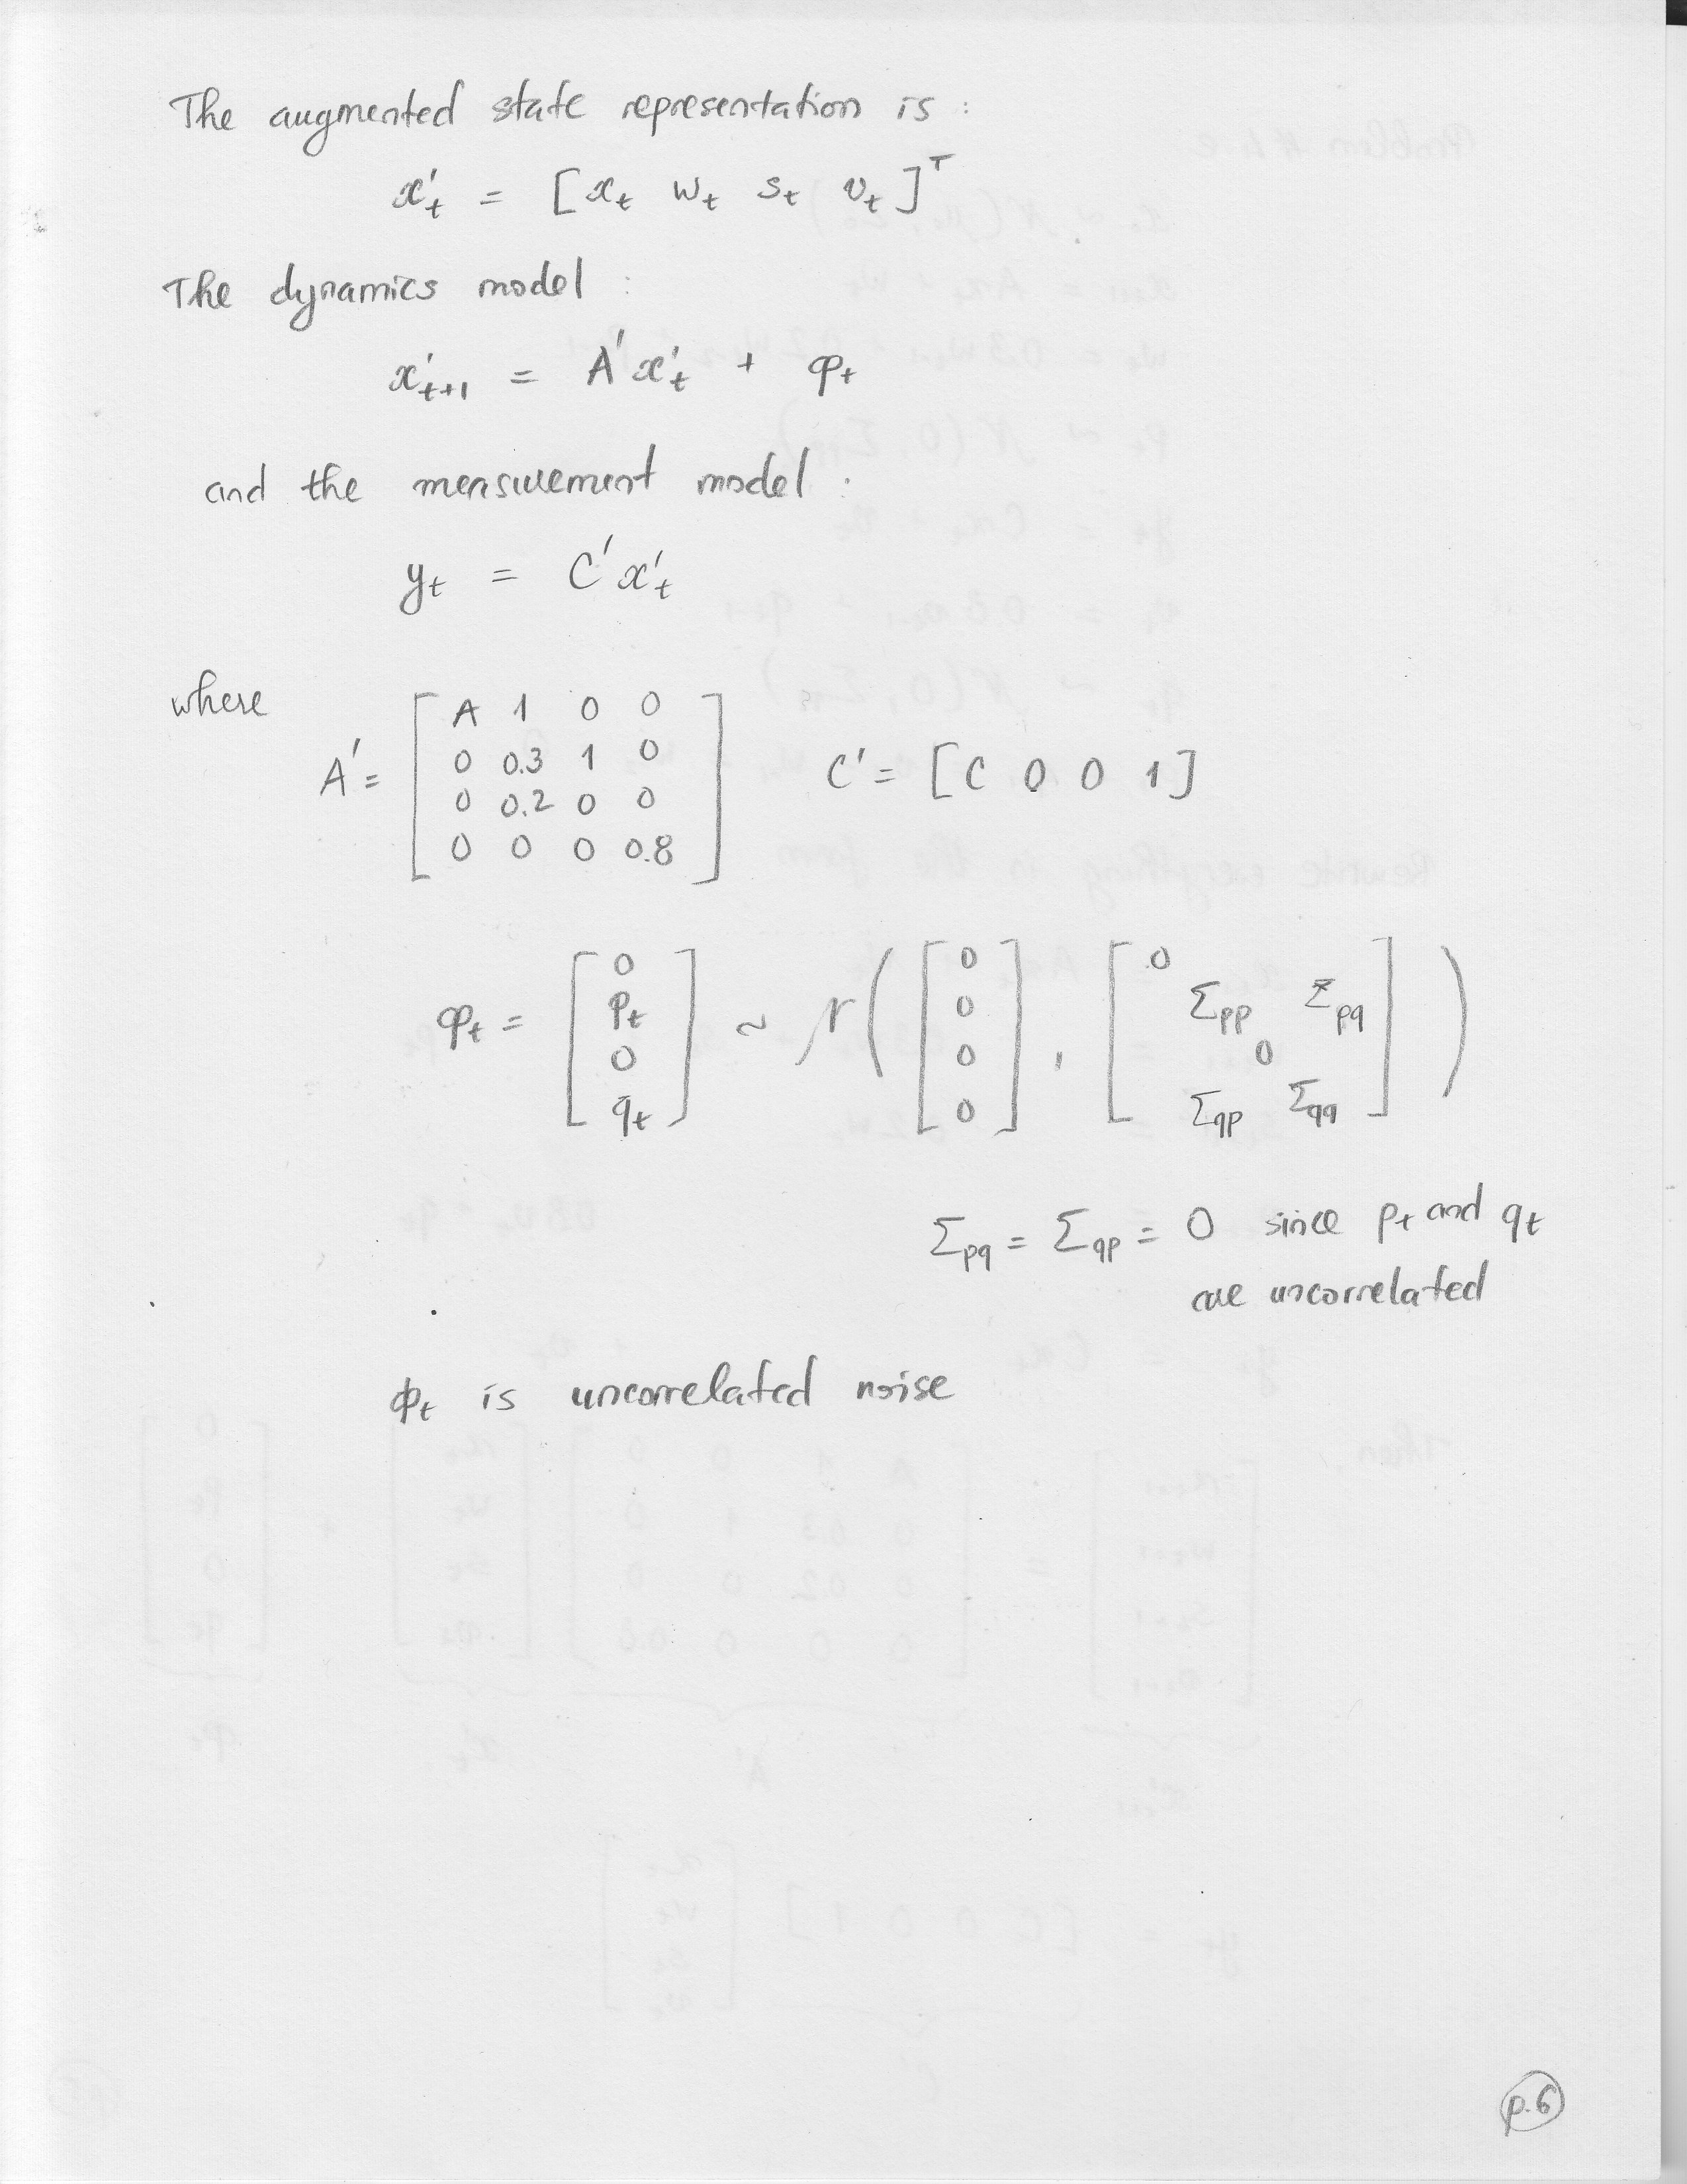 The augmented state representation is :
x't = [ xt wt st vt ]^T
The dynamics model :
x't+1 = A' x't + φt
and the measurement model :
yt = C' x't
where
A' = [ A 1 0 0
0 0.3 1 0
0 0.2 0 0
0 0 0 0.8 ]
C' = [ C 0 0 1 ]
φt = [ 0 pt 0 qt ] ~ N ( [ 0 0 0 0 ] , [ 0 Σpp Σpq 0 Σqp Σqq ] )
Σpq = Σqp = 0 since pt and qt
are uncorrelated
ϕt is uncorrelated noise
p.6